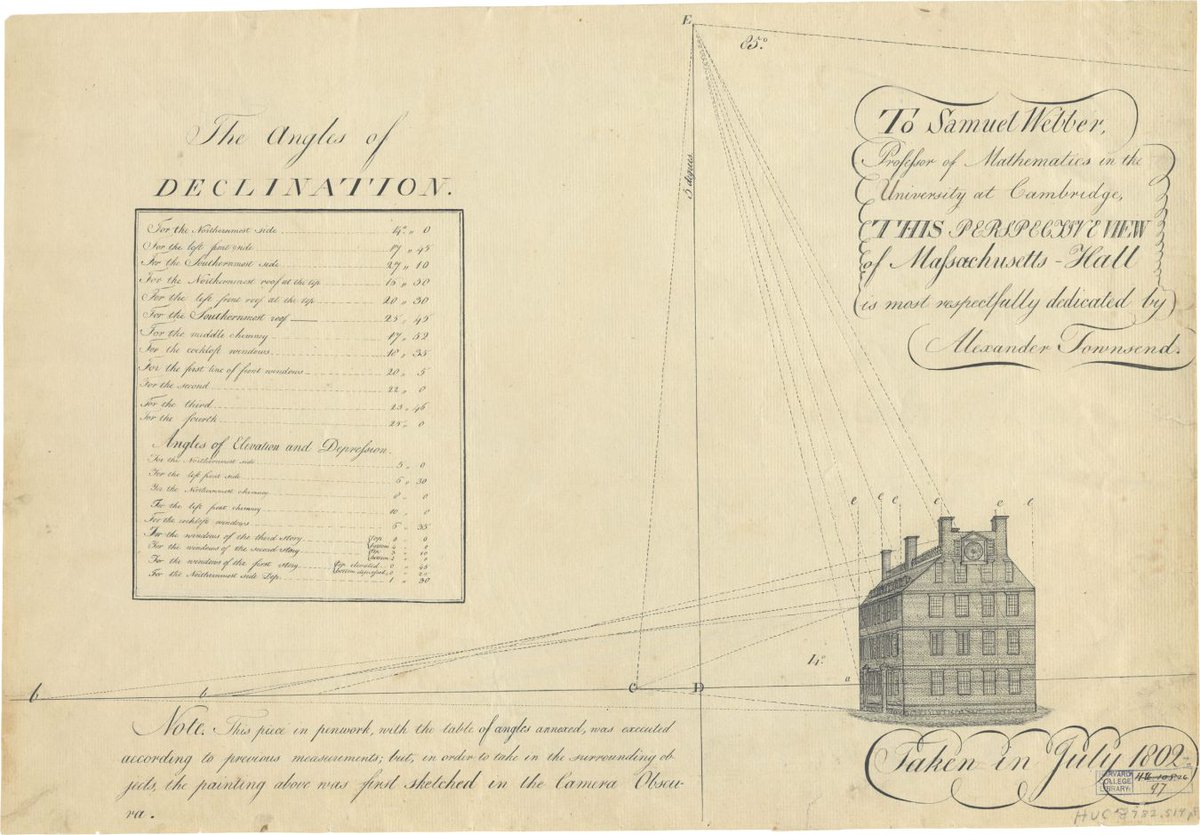 E
25°
5 degrees
The Angles of
DECLINATION.
For the Northernmost side 14° „ 0
For the left front side 17 „ 45
For the Southernmost side 27 „ 10
For the Northernmost roof at the top 15 „ 30
For the left front roof at the top 20 „ 30
For the Southernmost roof 25 „ 45
For the middle chimney 17 „ 52
For the cockloft windows 18 „ 35
For the first line of front windows 20 „ 5
For the second 22 „ 0
For the third 23 „ 46
For the fourth 25 „ 0
Angles of Elevation and Depression.
For the Northernmost side 5 „ 0
For the left front side 6 „ 30
For the Northernmost chimney 8 „ 0
For the left front chimney 10 „ 0
For the cockloft windows 6 „ 35
For the windows of the third story top
bottom
For the windows of the second story top
bottom
For the windows of the first story top elevated 0 „ 45
bottom depressed 0
For the Northernmost side Dep. 1 „ 30
To Samuel Webber,
Professor of Mathematics in the
University at Cambridge,
THIS PERSPECTIVE VIEW
of Massachusetts-Hall
is most respectfully dedicated by
Alexander Townsend.
e e e e e e
14°
b b C D a
Note. This piece in penwork, with the table of angles annexed, was executed
according to previous measurements; but, in order to take in the surrounding ob-
jects, the painting above was first sketched in the Camera Obscu-
ra.
Taken in July 1802
HARVARD
COLLEGE
LIBRARY
47